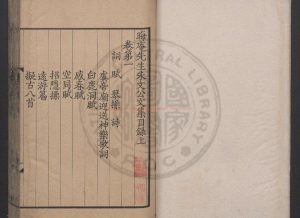 晦庵先生朱文公文集目錄上
卷第一
詞 賦 琴操 詩
虞帝廟迎送神樂歌詞
白鹿洞賦
感春賦
空同賦
招隱操
遠遊篇
擬古八首